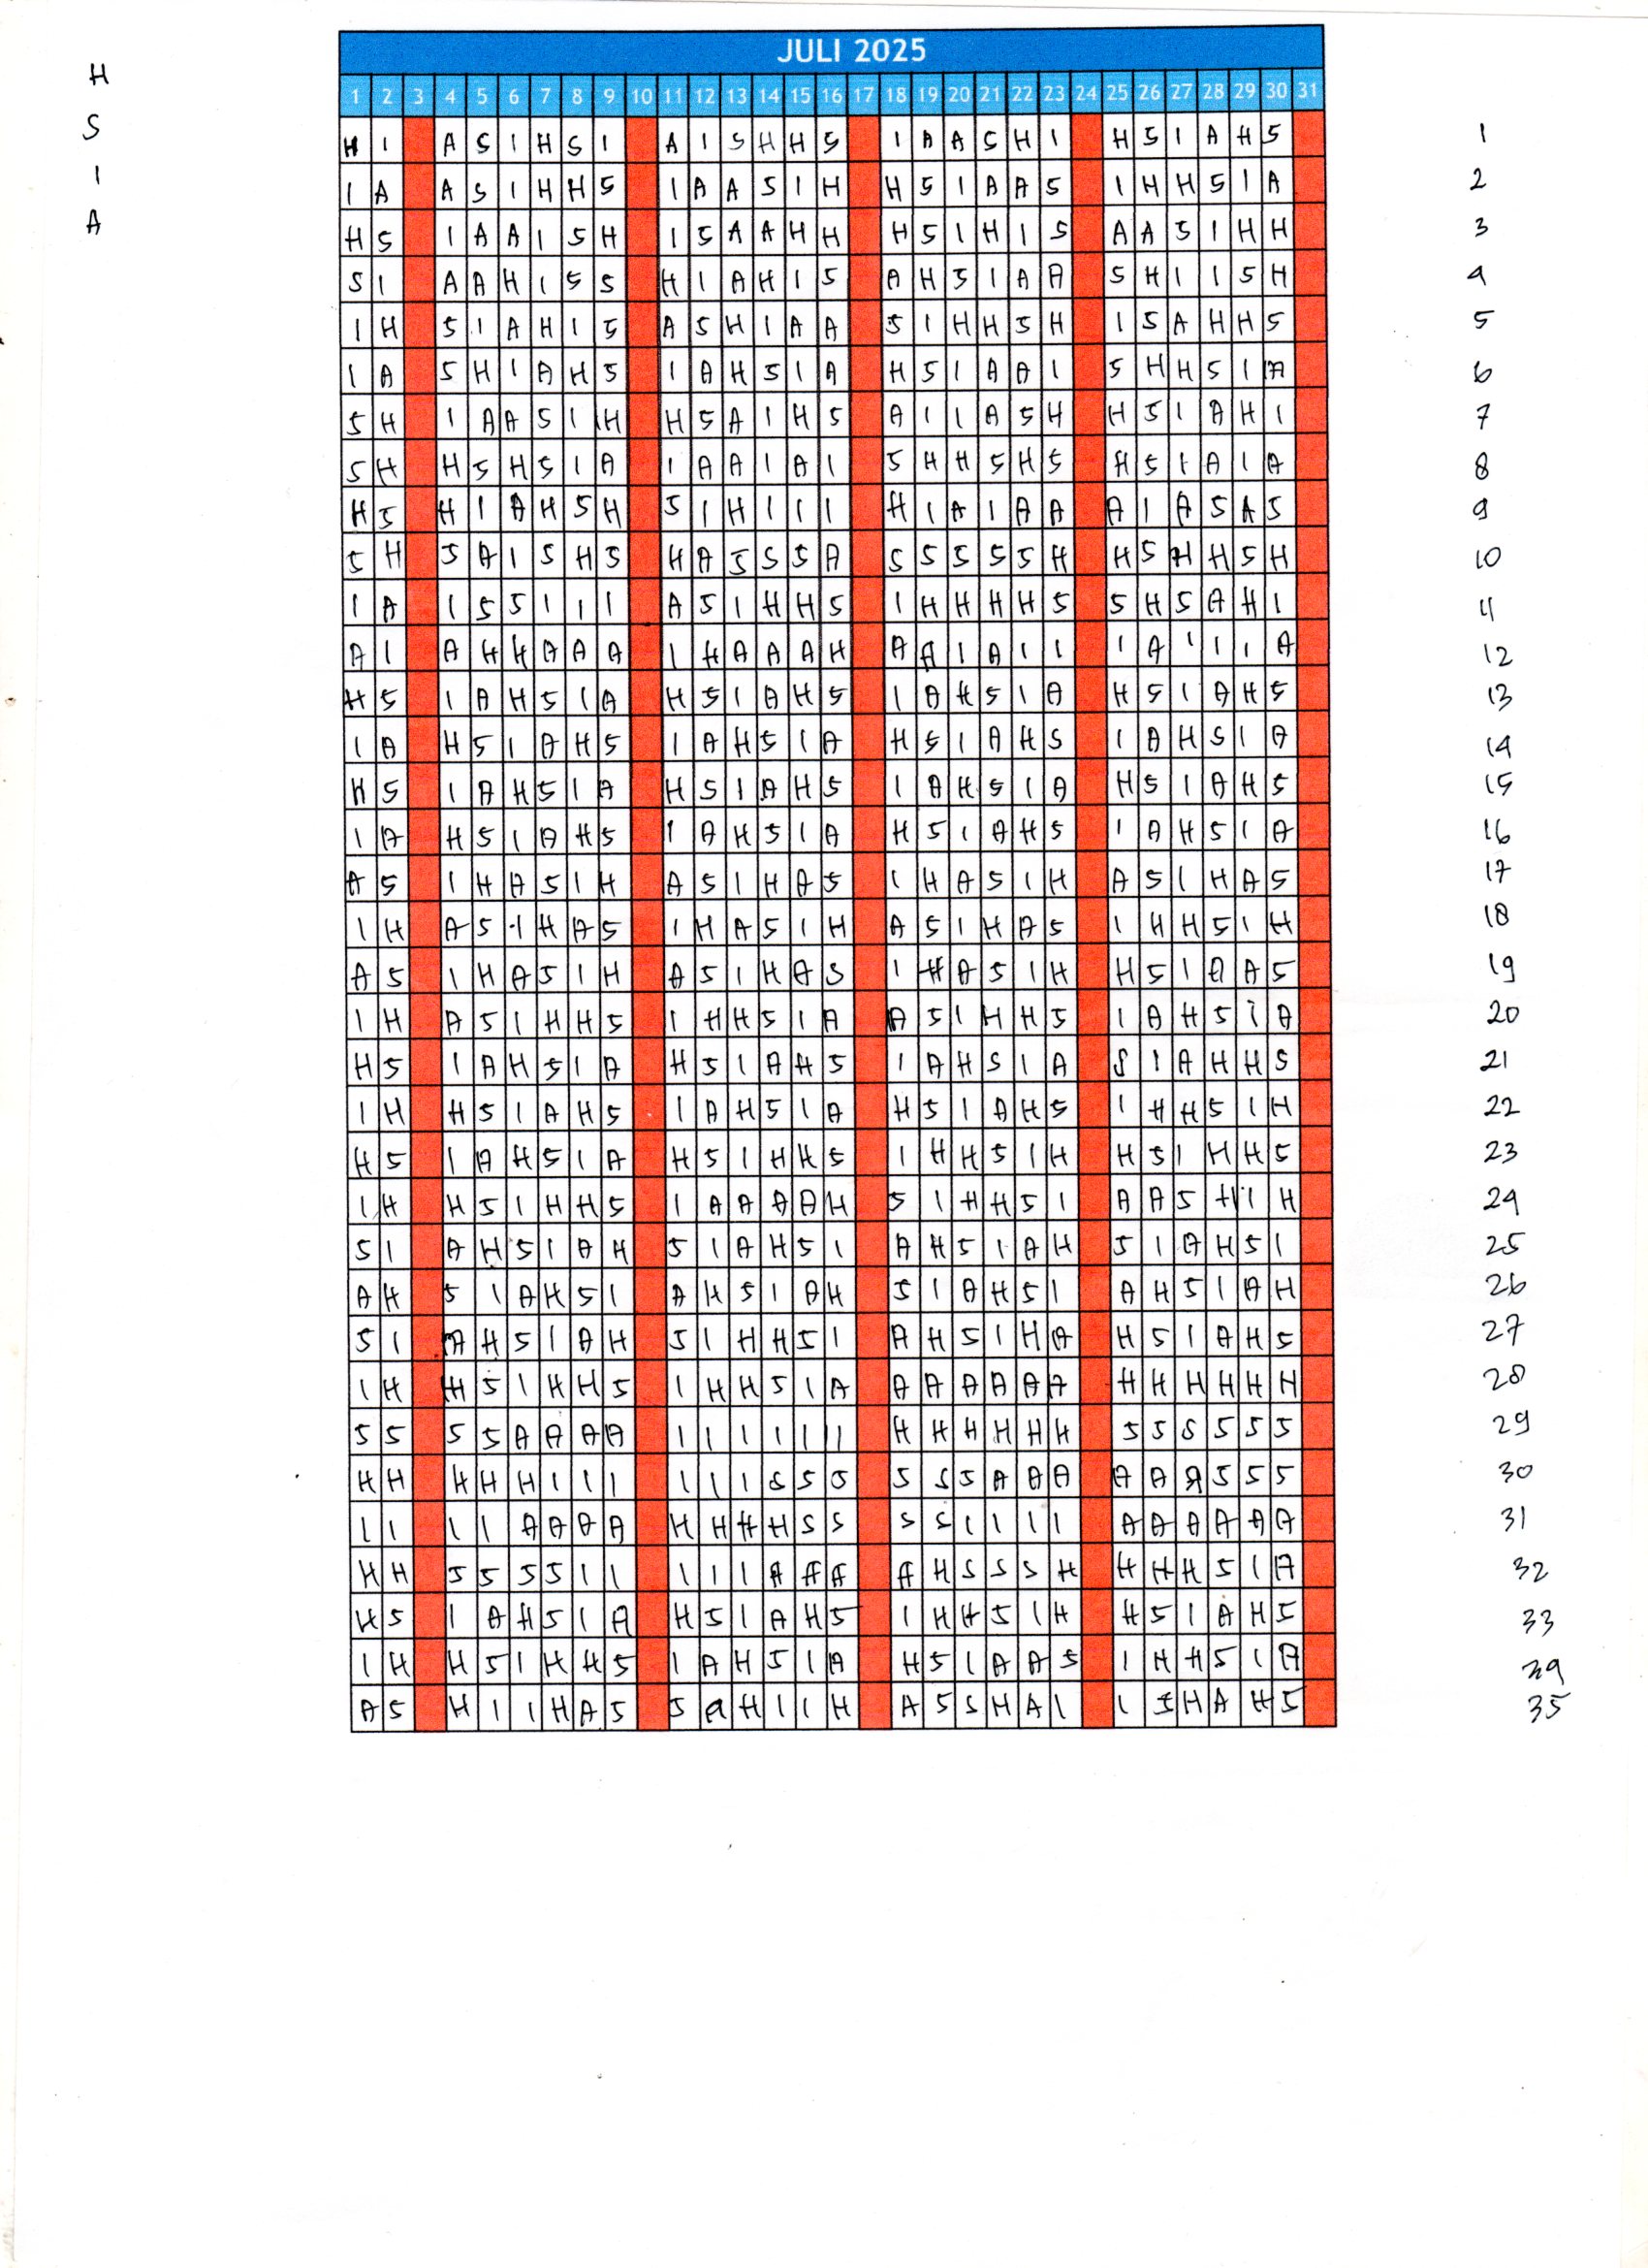 JULI 2025
1 2 3 4 5 6 7 8 9 10 11 12 13 14 15 16 17 18 19 20 21 22 23 24 25 26 27 28 29 30 31
H
S
I
A
H I A S I H S I A I S H H S I A A S H I H S I A H S 1
I A A S I H H S I A A S I H H S I A A S I H H S I A 2
H S I A A I S H I S A A H H H S I H I S A A S I H H 3
S I A A H I S S H I A H I S A H S I A A S H I I S H 4
I H S I A H I S A S H I A A S I H H S H I S A H H S 5
I A S H I A H S I A H S I A H S I A A I S H H S I A 6
S H I A A S I H H S A I H S A I I A S H H S I A H I 7
S H H S H S I A I A A I A I S H H S H S H S I A I A 8
H S H I A H S H S I H I I I H I A I A A A I A S A S 9
S H S A I S H S H A S S S A S S S S S H H S H H S H 10
I A I S S I I I A S I H H S I H H H H S S H S A H I 11
A I A H H A A A I H A A A H A A I A I I I A I I I A 12
H S I A H S I A H S I A H S I A H S I A H S I A H S 13
I A H S I A H S I A H S I A H S I A H S I A H S I A 14
H S I A H S I A H S I A H S I A H S I A H S I A H S 15
I A H S I A H S I A H S I A H S I A H S I A H S I A 16
A S I H A S I H A S I H A S I H A S I H A S I H A S 17
I H A S I H A S I H A S I H A S I H A S I H H S I H 18
A S I H A S I H A S I H A S I H A S I H H S I A A S 19
I H A S I H H S I H H S I A A S I H H S I A H S I A 20
H S I A H S I A H S I A H S I A H S I A S I A H H S 21
I H H S I A H S I A H S I A H S I A H S I H H S I H 22
H S I A H S I A H S I H H S I H H S I H H S I H H S 23
I H H S I H H S I A A A A H S I H H S I A A S H I H 24
S I A H S I A H S I A H S I A H S I A H S I A H S I 25
A H S I A H S I A H S I A H S I A H S I A H S I A H 26
S I A H S I A H S I H H S I A H S I H A H S I A H S 27
I H H S I H H S I H H S I A A A A A A A H H H H H H 28
S S S S A A A A I I I I I I H H H H H H S S S S S S 29
H H H H H I I I I I I S S S S S S A A A A A A S S S 30
I I I I A A A A H H H H S S S S I I I I A A A A A A 31
H H S S S S I I I I I A A A A H S S S H H H H S I A 32
H S I A H S I A H S I A H S I H H S I H H S I A H S 33
I H H S I H H S I A H S I A H S I A A S I H H S I A 34
A S H I I H A S S a H I I H A S S H A I I S H A H S 35